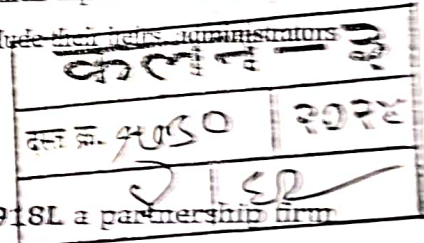 lude their heirs administrators
कलन - ३
दस्त क्र. २०२४
918L a partnership firm